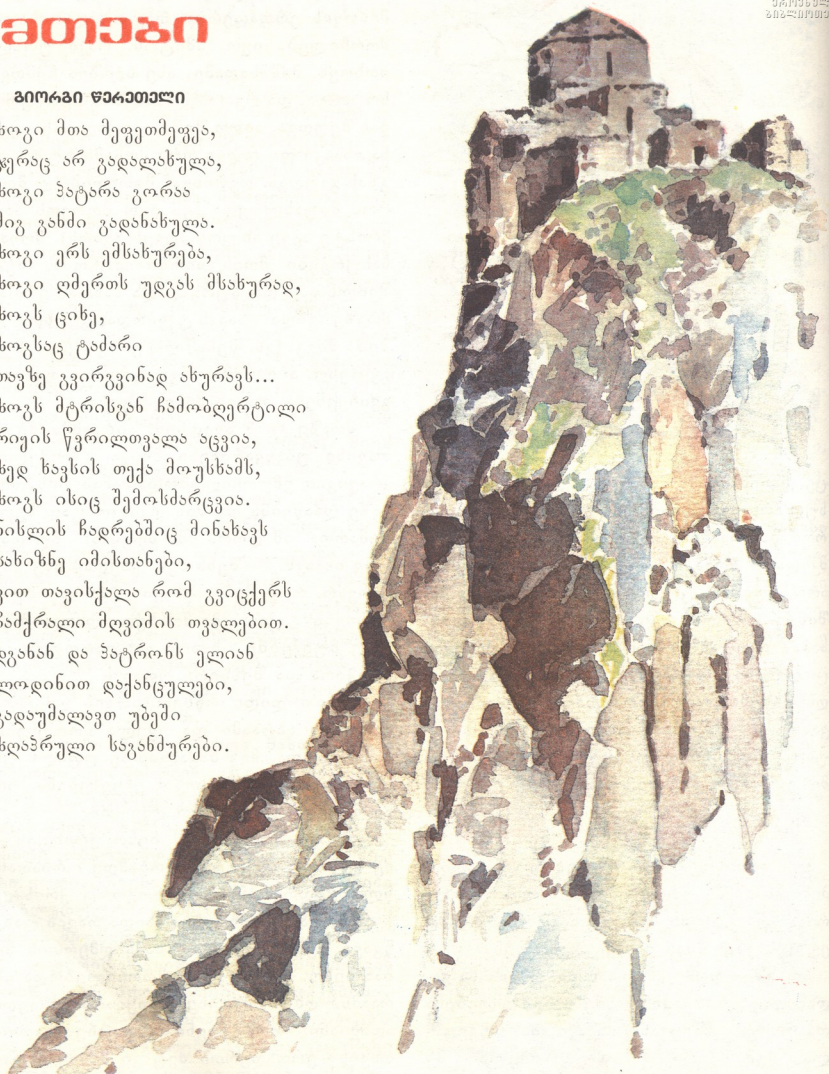 მთები
გიორგი წერეთელი
ზოგი მთა მეფეთმეფეა,
ჯერაც არ გადალახულა,
ზოგი პატარა გორაა
მიგ განმი გადანახულა.
ზოგი ერს ემსახურება,
ზოგი ღმერთს უდგას მსახურად,
ზოგს ციხე,
ზოგსაც ტაძარი
თავზე გვირგვინად ახურავს...
ზოგს მტრისგან ჩამობღერტილი
რიყის წვრილთვალა აცვია,
ზედ ხავსის თექა მოუსხამს,
ზოგს ისიც შემოსძარცვია.
ნისლის ჩადრებშიც მინახავს
სახიზნე იმისთანები,
თავისქალა რომ გვიცქერს
ჩამქრალი მღვიმის თვალებით.
დგანან და პატრონს ელიან
ლოდინით დაქანცულები,
გადაუმალავთ უბეში
ზღაპრული საგანძურები.